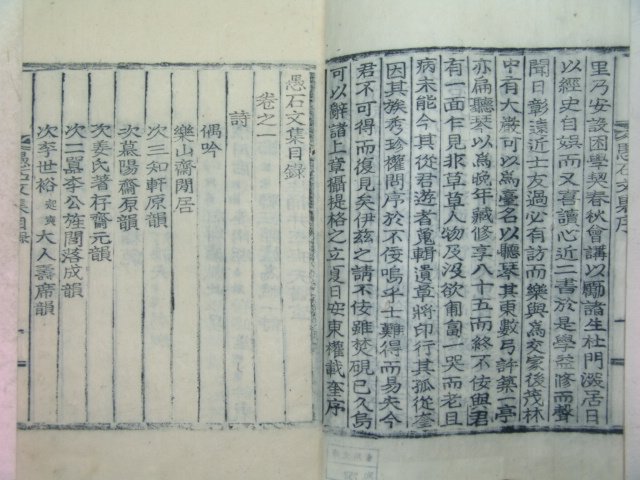 里乃安設困學契春秋會講以勵諸生杜門潑居日
以經史自娛而又喜讀心近二書於是學益修而聲
聞日彰遠近士友過必有訪而樂與爲交家後茂林
中有大巖可以爲臺名以聽琴其東數弓許築一亭
亦扁聽琴以爲晚年藏修享八十五而終不佞與君
有一面乍見非草草人物及沒欲匍匐一哭而老且
病未能今其從君遊者蒐輯遺章將印行其孤從鎣
因其族秀珍權問序於不佞嗚乎士難得而易失今
君不可得而復見矣伊玆之請不佞雖焚硯已久烏
可以辭諸上章攝提格之立夏日安東權載奎序
愚石文集序
愚石文集目錄
卷之一
詩
偶吟
樂山齋閒居
次三知軒原韻
次慕陽齋原韻
次姜氏著存齋元韻
次二嵒李公旌閭落成韻
次李世裕 大人壽席韻
愚石文集目錄